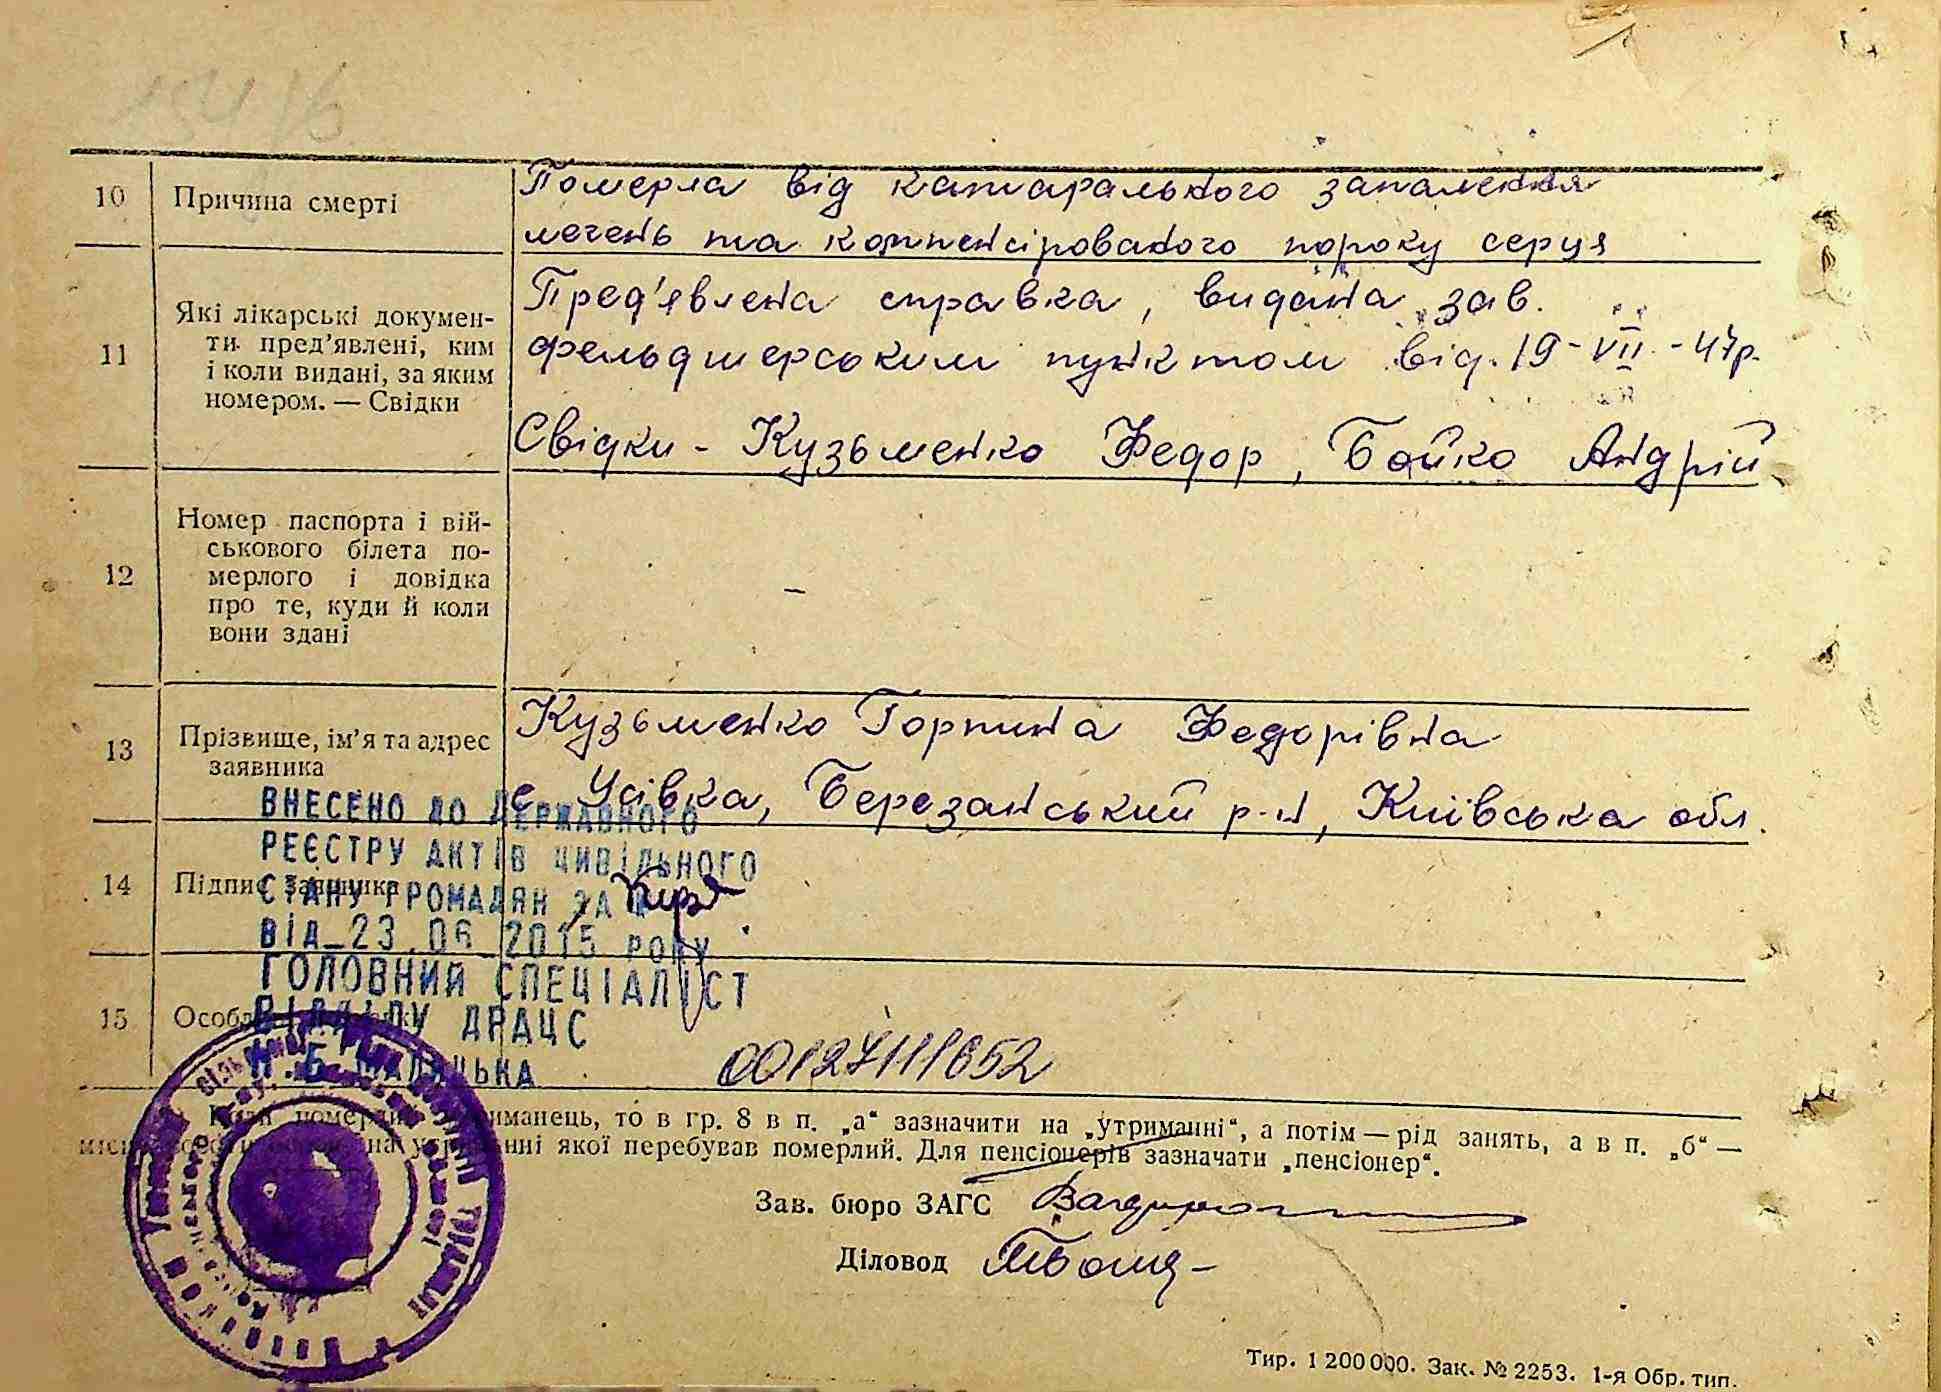 10 Причина смерті
Померла від катарального запалення
легень та компенсірованого пороку серця
11 Які лікарські докумен-
ти пред'явлені, ким
і коли видані, за яким
номером. — Свідки
Пред'явлена справка, видана зав.
фельдшерським пунктом від. 19-VII-47р.
Свідки - Кузьменко Федор, Бойко Андрій
12 Номер паспорта і вій-
ськового білета по-
мерлого і довідка
про те, куди й коли
вони здані
–
13 Прізвище, ім'я та адрес
заявника
Кузьменко Горпина Федорівна
с. Усівка, Березанський р-н, Київська обл.
ВНЕСЕНО ДО ДЕРЖАВНОГО
РЕЄСТРУ АКТІВ ЦИВІЛЬНОГО
14 Підпис заявника
СТАНУ ГРОМАДЯН ЗА
ВІД 23.06 2015 РОКУ
ГОЛОВНИЙ СПЕЦІАЛІСТ
15
ВІДДІЛУ ДРАЦС
00127111652
иманець, то в гр. 8 в п. „а“ зазначити на „утриманні“, а потім — рід занять, а в п. „б“ —
на утриманні якої перебував померлий. Для пенсіонерів зазначати „пенсіонер“.
Зав. бюро ЗАГС
Діловод
Тир. 1 200 000. Зак. № 2253. 1-я Обр. тип.